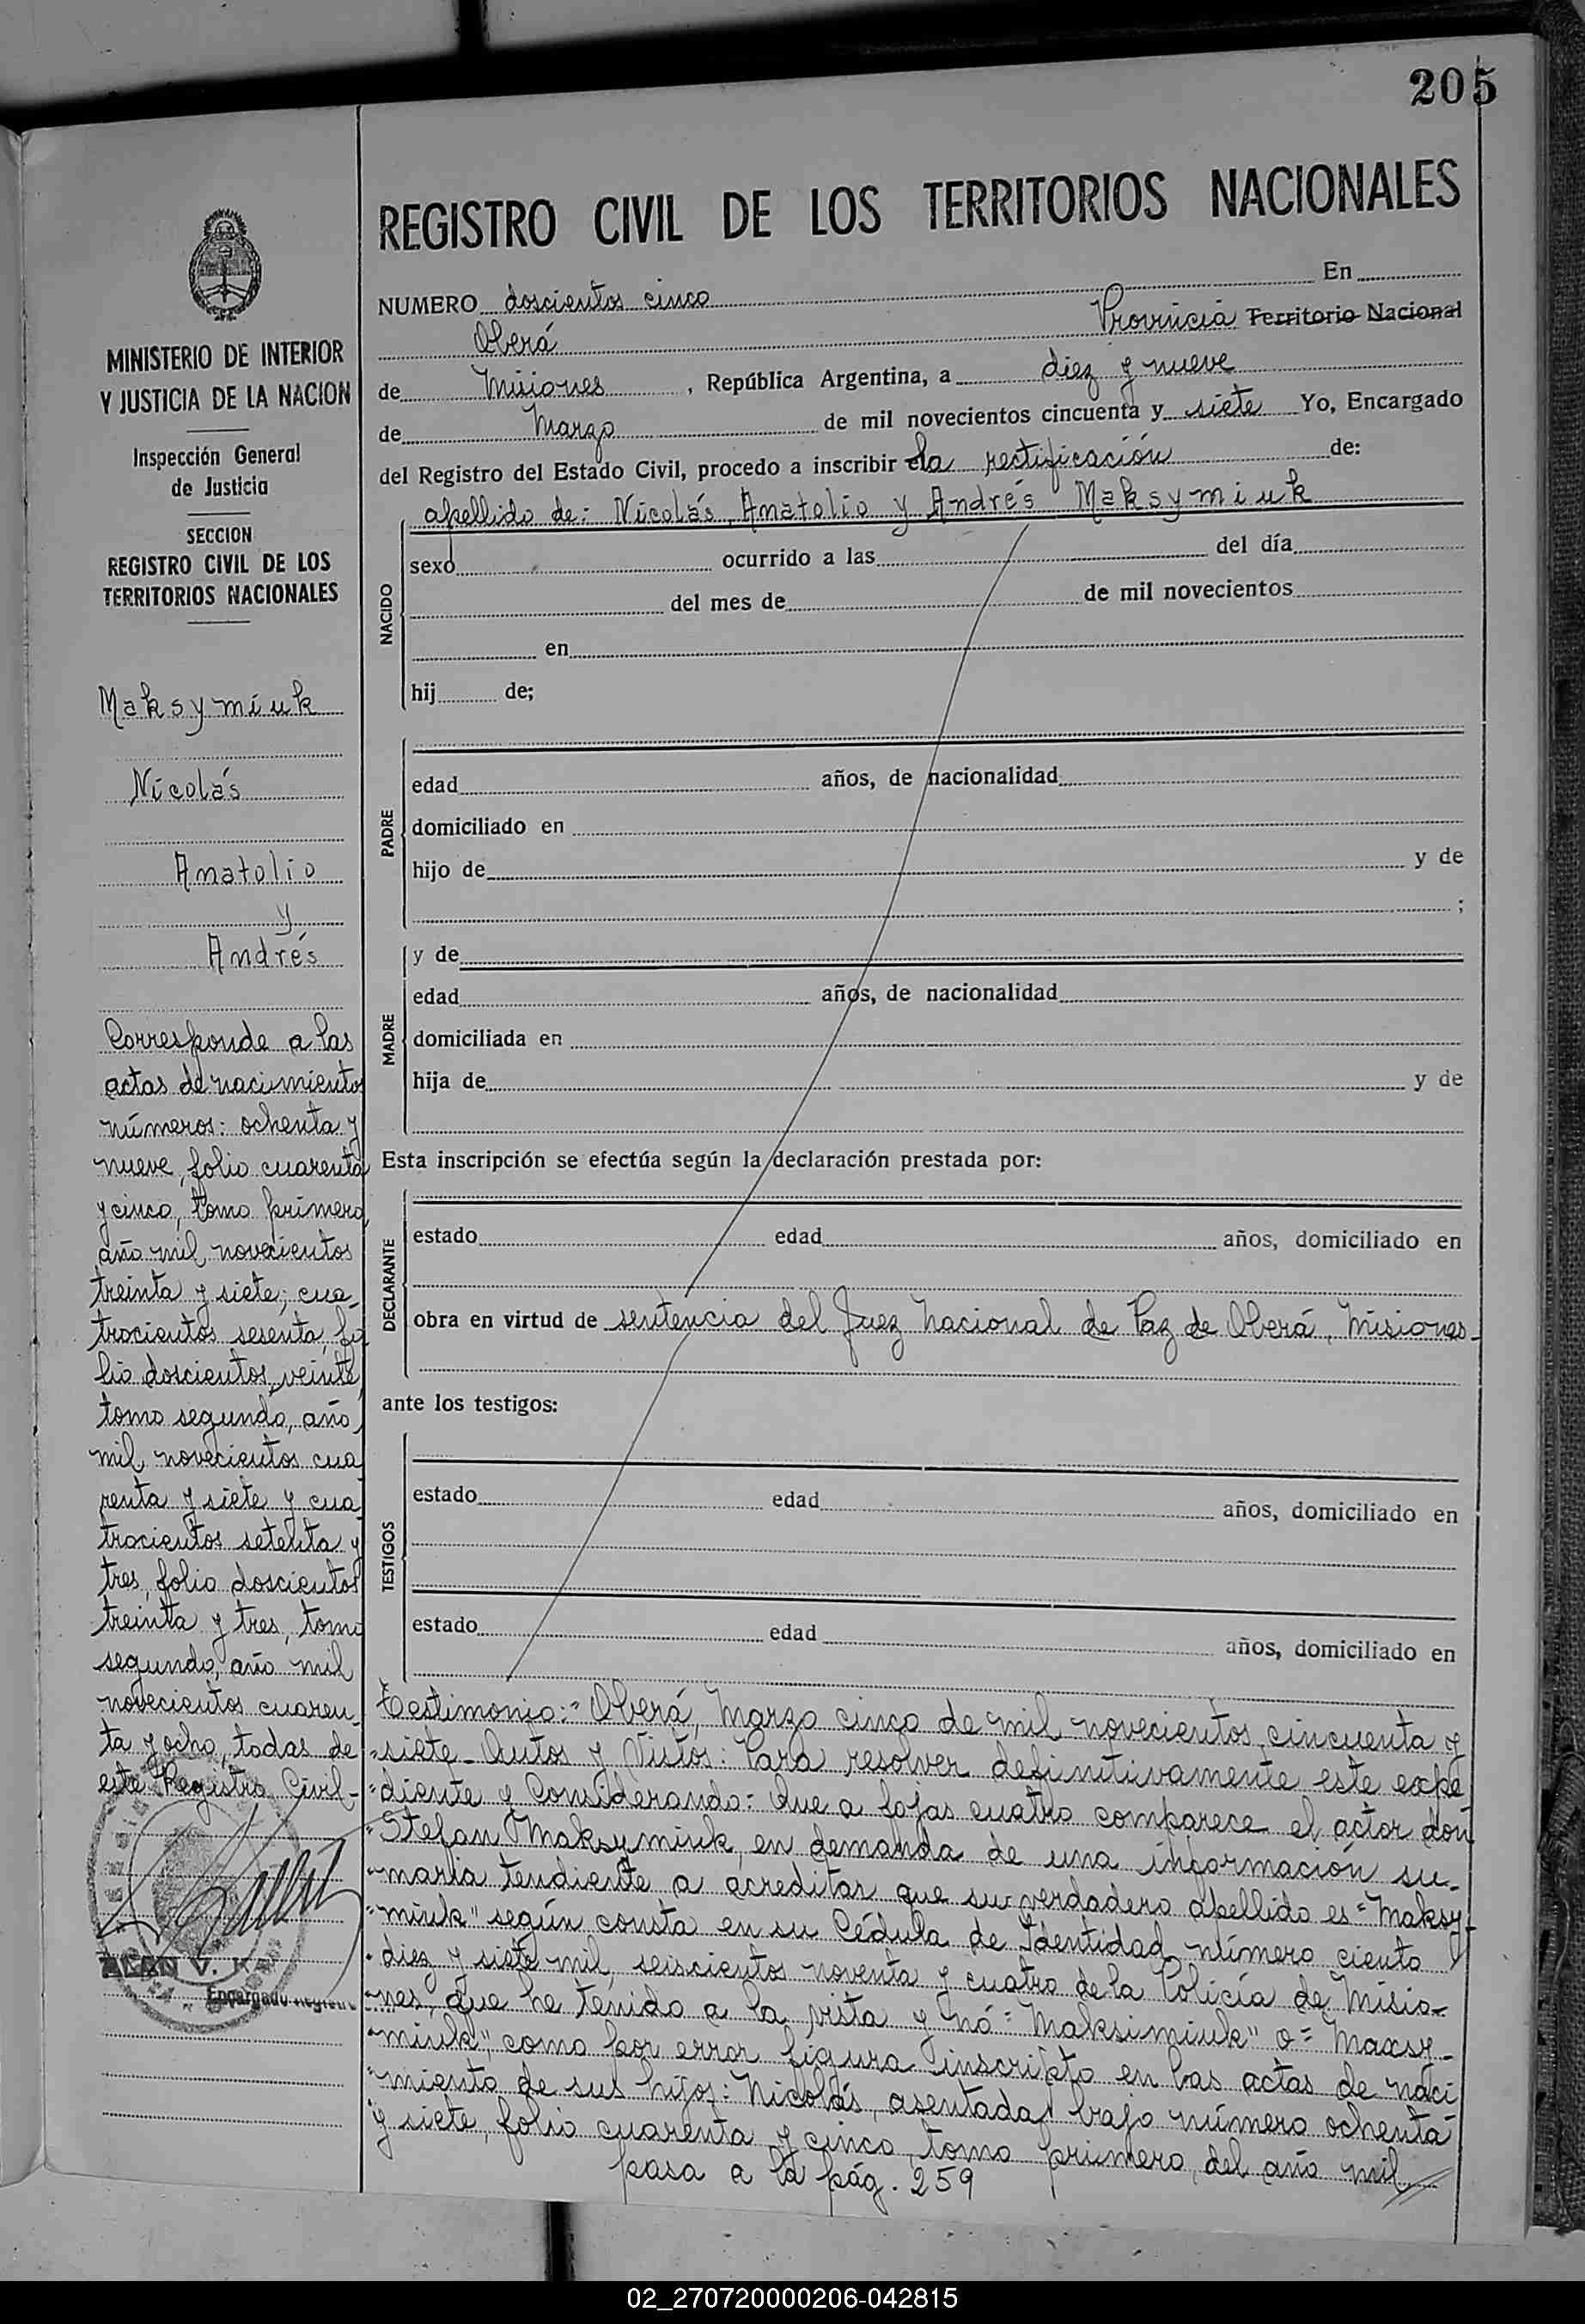 205
REGISTRO CIVIL DE LOS TERRITORIOS NACIONALES
NUMERO doscientos cinco En
Oberá Provincia Territorio Nacional
de Misiones, República Argentina, a diez y nueve
de Marzo de mil novecientos cincuenta y siete Yo, Encargado
del Registro del Estado Civil, procedo a inscribir la rectificación de:
apellido de: Nicolás, Anatolio y Andrés Maksymiuk
NACIDO
sexo ocurrido a las del día
del mes de de mil novecientos
en
hij de;
PADRE
edad años, de nacionalidad
domiciliado en
hijo de y de
;
MADRE
y de
edad años, de nacionalidad
domiciliada en
hija de y de
Esta inscripción se efectúa según la declaración prestada por:
DECLARANTE
estado edad años, domiciliado en
obra en virtud de sentencia del Juez Nacional de Paz de Oberá, Misiones-
ante los testigos:
TESTIGOS
estado edad años, domiciliado en
estado edad años, domiciliado en
Testimonio:" Oberá, Marzo cinco de mil novecientos cincuenta y
"siete- Autos y Vistos: Para resolver definitivamente este expe
"diente y Considerando: Que a fojas cuatro comparece el actor don
"Stefan Maksymiuk, en demanda de una información su-
"maria tendiente a acreditar que su verdadero apellido es "Maksy-
"miuk" según consta en su Cédula de Identidad número ciento
"diez y siete mil seiscientos noventa y cuatro de la Policía de Misio-
"nes, que he tenido a la vista y nó "Maksimiuk" o "Maxsy-
"miuk", como por error figura inscripto en las actas de naci
"miento de sus hijos: Nicolás, asentada bajo número ochenta
"y siete, folio cuarenta y cinco, tomo primero, del año mil
pasa a la pág. 259
MINISTERIO DE INTERIOR
Y JUSTICIA DE LA NACION
Inspección General
de Justicia
SECCION
REGISTRO CIVIL DE LOS
TERRITORIOS NACIONALES
Maksymiuk
Nicolás
Anatolio
y
Andrés
Corresponde a las
actas de nacimientos
números: ochenta y
nueve, folio cuarenta
y cinco, tomo primero,
año mil novecientos
treinta y siete; cua-
trocientos sesenta, fo
lio doscientos veinte,
tomo segundo, año
mil novecientos cua
renta y siete y cua
trocientos setenta y
tres, folio doscientos
treinta y tres, tomo
segundo, año mil
novecientos cuaren-
ta y ocho, todas de
este Registro Civil-
ALAN V.
Encargado
02_270720000206-042815